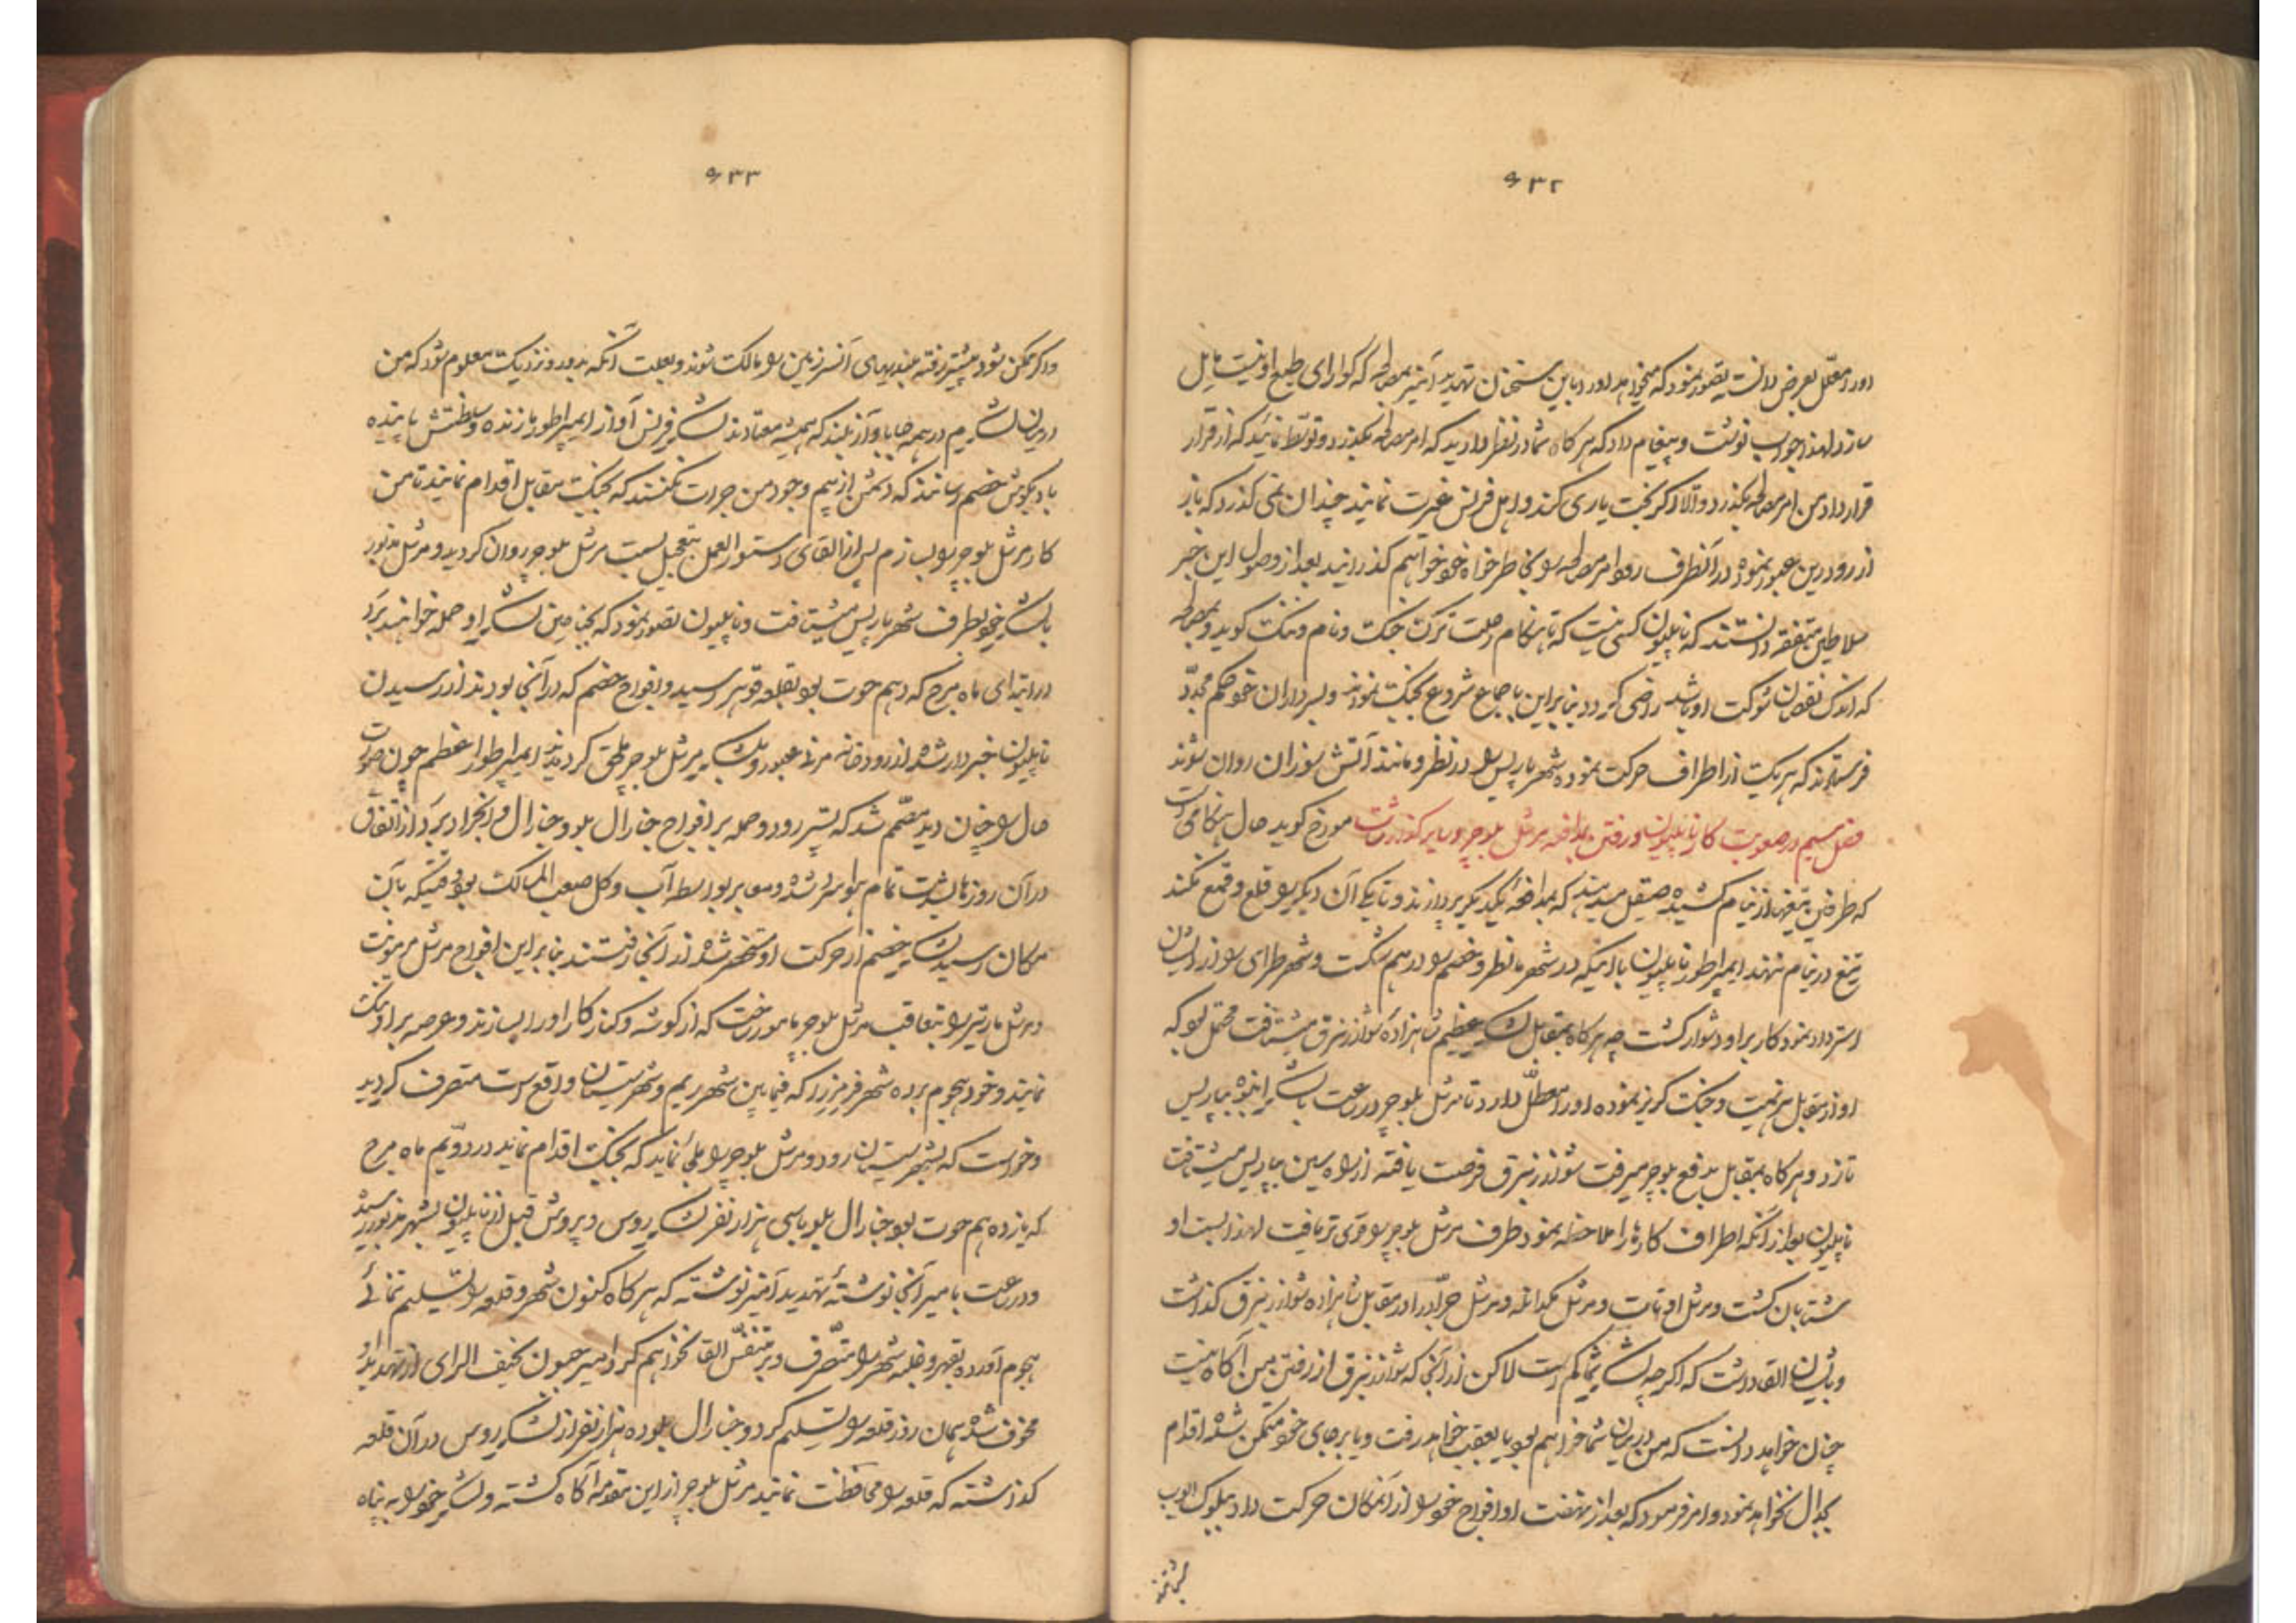 ۶۳۲
اورا معطل بعرض دانست تصور نمود که میخواهد اورا باین سخنان تهدید آمیز بمصالحه که گوارای طبع او نیست مایل
سازد لهذا جواب نوشت و پیغام داد که هرگاه شما در نظر دارید که امر مصالحه بگذرد و توسط نمائید که از قرار
قرارداد من امر مصالحه بگذرد والا اگر بخت یاری کند و اهل فرنس غیرت نمایند چندان نمی گذرد که باز
از رود رین عبور نموده در آنطرف رود امر مصالحه را بخاطر خواه خود خواهم گذرانید بعد از وصول این خبر
سلاطین متفقه دانستند که ناپلیون کسی نیست که تا هنگام رحلت ترک جنگ و نام و ننگ گوید و بمصالحه
که اندک نقصان شوکت او باشد راضی گردد بنابراین باجماع شروع بجنگ نمودند و بسرداران خود حکم مجدد
فرستادند که هر یک از اطراف حرکت نموده شهر پاریس را در نظر و مانند آتش سوزان روان شوند
فصل سیم در صعوبت کار ناپلیون و رفتن بمدافعه مرشل بلوچر و سایر گذارشات مورخ گوید حال هنگامی است
که طرفین تیغها از نیام کشیده صیقل میدهند که بمدافعه یکدیگر پردازند و تا یکی آن دیگر را قلع و قمع نکند
تیغ در نیام ننهند ایمپراطور ناپلیون با اینکه در شهر مانطرو خصم را در هم شکست و شهر طرای را از ایشان
استرداد نمود کار بر او دشوار گشت چه هرگاه بمقابل لشکر عظیم شاهزاده شوارزنبرق میشتافت محتمل بود که
او از مقابل هزیمت و جنگ گریز نموده اورا معطل دارد تا مرشل بلوچر در رعت با لشکر انبوه بپاریس
تازد و هرگاه بمقابل بدفع بلوچر میرفت شوارزنبرق فرصت یافته از راه سین بپاریس میشتافت
ناپلیون بعد از آنکه اطراف کارها را ملاحظه نمود طرف مرشل بلوچر را قوی تر یافت لهذا بسمت او
شتابان گشت و مرشل اودنات و مرشل مکدانلد و مرشل جرادرا در مقابل شاهزاده شوارزنبرق گذاشت
و بایشان القا داشت که اگر چه لشکر شما کم است لاکن از آنجا که شوارزنبرق از رفتن من آگاه نیست
چنان خواهد دانست که من در میان شما خواهم بود یا بعقب خواهد رفت و یا بر جای خود متمکن شده اقدام
بجدال نخواهد نمود و امر فرمود که بعد از نهضت او افواج خود را از آنمکان حرکت داد ببلوک
۶۳۳
و اگر ممکن شود پیشتر رفته بلندیهای آنسرزمین را مالک شوند و بعلت آنکه بدور و نزدیک معلوم شود که من
در میان لشکریم در همه جا با آواز بلند که همیشه معتادند لشکر فرنس آواز ایمپراطور ما زنده و سلطنتش پاینده
باد بگوش خصم رسانند که دشمن از بیم وجود من جرات نکنند که بجنگ مقابل اقدام نمایند تا من
کار مرشل بلوچر را بسازم پس از القای دستور العمل بتعجیل بسمت مرشل بلوچر روان گردید و مرشل مذکور
با لشکر خود بطرف شهر پاریس میشتافت و ناپلیون تصور نمود که بجناحین لشکر او حمله خواهند برد
در ابتدای ماه مرچ که دهم حوت بود بقلعه قوبر رسید و افواج خصم که در آنجا بودند از رسیدن
ناپلیون خبردار شده از رودخانه مرند عبور و بلشکر مرشل بلوچر ملحق گردیدند ایمپراطور اعظم چون صورت
حال را چنان دید مصمم شد که پیشتر رود و حمله بر افواج جنارال بلو و جنارال ... برد از اتفاق
در آن روزها بشدت تمام هوا سرد شده و معابر بواسطه آب و گل صعب المسالک بود وقتیکه بآن
مکان رسید لشکر خصم از حرکت او مستحضر شده از آنجا رفتند بنابراین افواج مرشل مرمونت
و مرشل مارتیر را بتعاقب مرشل بلوچر مامور ساخت که از گوشه و کنار کار اورا بسازند و عرصه بر او تنگ
نمایند و خود هجوم برده شهر فرمزرا که فیمابین شهر ریم و شهر سیسان واقع است متصرف گردید
و خواست که بشهر سیسان رود و مرشل بلوچر را ملجأ نماید که بجنگ اقدام نماید در دویم ماه مرچ
که یازدهم حوت بود جنارال بلو با سی هزار نفر لشکر روس و پروش قبل از ناپلیون بشهر مذبور رسید
و در رعت بامیر آنجا نوشتهٔ تهدید آمیز نوشته که هرگاه کنون شهر و قلعه را تسلیم ننمائے
هجوم آورده بقهر و غلبه شهر را متصرف و بر متنفس القا نخواهم کرد امیر چون نحیف الرای از تهدید او
مخوف شده همان روز قلعه را تسلیم کرد و جنارال بلو ده هزار نفر از لشکر روس در آن قلعه
گذاشته که قلعه را محافظت نمایند مرشل بلوچر از این مقدمه آگاه گشته و لشکر خود را به پناه